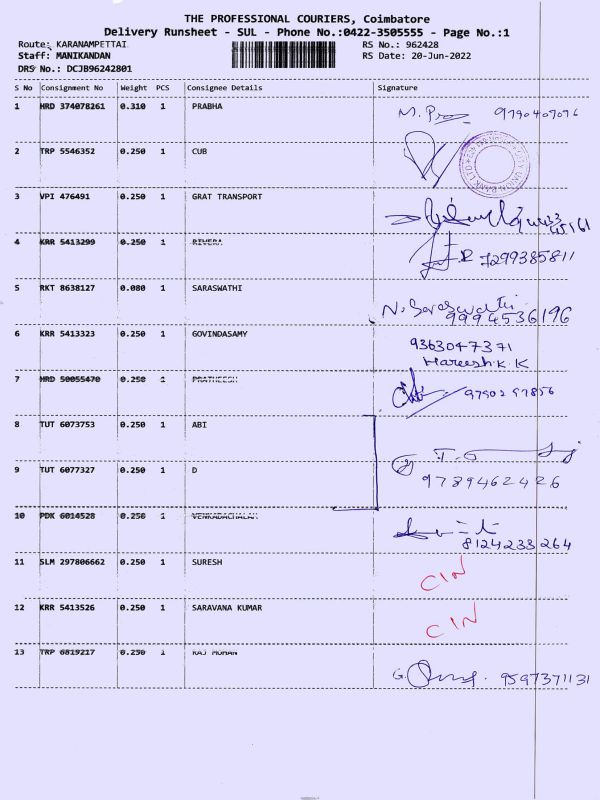 THE PROFESSIONAL COURIERS, Coimbatore
Delivery Runsheet - SUL - Phone No.:0422-3505555 - Page No.:1
Route: KARANAMPETTAI RS No.: 962428
Staff: MANIKANDAN RS Date: 20-Jun-2022
DRS No.: DCJB96242801
S No Consignment No Weight PCS Consignee Details Signature
1 HRD 374078261 0.310 1 PRABHA M. 9790407076
2 TRP 5546352 0.250 1 CUB
3 VPI 476491 0.250 1 GRAT TRANSPORT
45161
4 KRR 5413299 0.250 1 RIVERA 7299385811
5 RKT 8638127 0.080 1 SARASWATHI N. Saraswathi
9994536196
6 KRR 5413323 0.250 1 GOVINDASAMY 9363047371
Hareesh K.K
7 HRD 50055470 0.250 1 PRATHEESH 9790297856
8 TUT 6073753 0.250 1 ABI
9 TUT 6077327 0.250 1 D 9789462426
10 PDK 6014528 0.250 1 VENKADACHALAM
8124233264
11 SLM 297806662 0.250 1 SURESH CIN
12 KRR 5413526 0.250 1 SARAVANA KUMAR CIN
13 TRP 6819217 0.250 1 RAJ MOHAN G. 9597371131